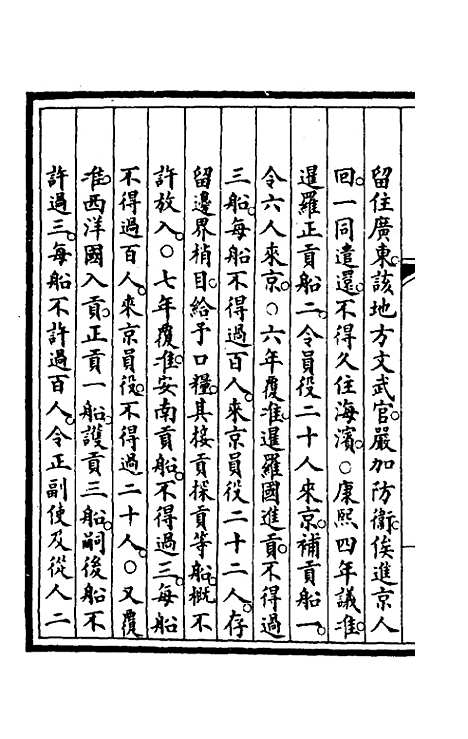 留住廣東。該地方文武官。嚴加防衞。俟進京人
回。一同遣還。不得久住海濱。○康熙四年議准。
暹羅正貢船二。令員役二十人來京。補貢船一。
令六人來京。○六年覆准。暹羅國進貢。不得過
三船。每船不得過百人。來京員役二十二人。存
留邊界梢目。給予口糧。其接貢探貢等船。概不
許放入。○七年覆准。安南貢船。不得過三。每船
不得過百人。來京員役。不得過二十人。○又覆
准。西洋國入貢。正貢一船。護貢三船。嗣後船不
許過三。每船不許過百人。令正副使及從人二